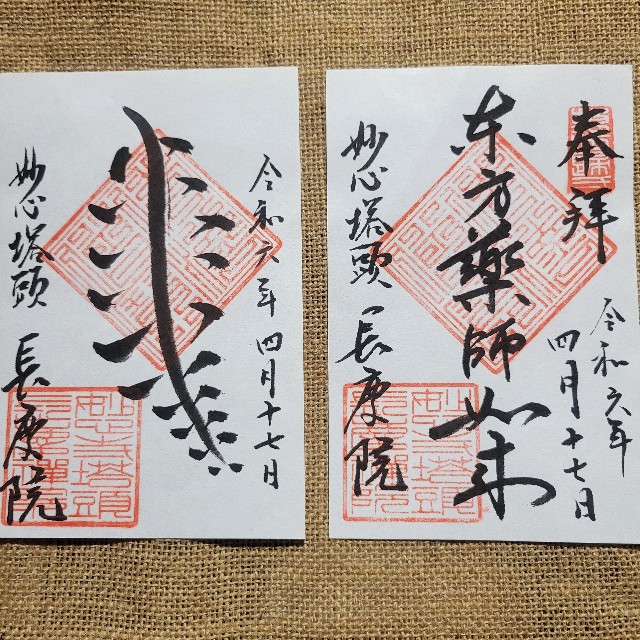 令和六年四月十七日
妙心塔頭 長慶院
奉拝
令和六年
四月十七日
东方薬師如来
妙心塔頭 長慶院